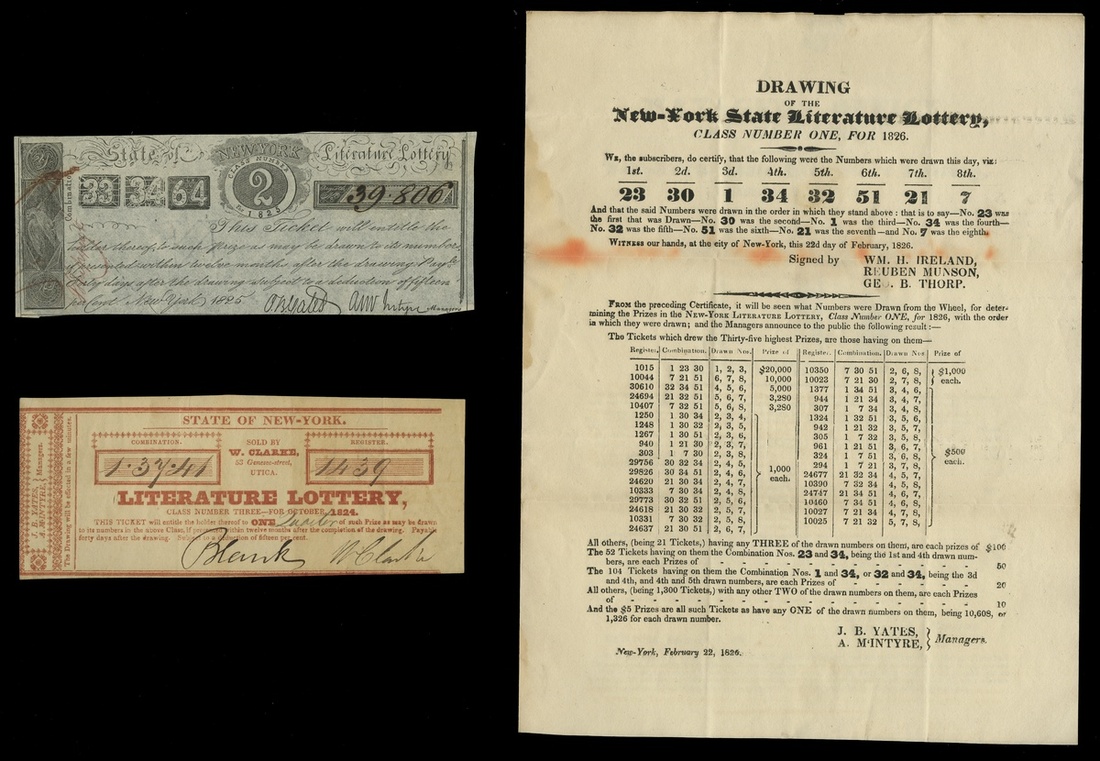 State of NEW-YORK Literature Lottery
CLASS NUMBER
2
For 1825
Combinat
33 34 64
39.806
This Ticket will entitle the
holder thereof to such Prize as may be drawn to its numbers
if presented within twelve months after the drawing: Payle
forty days after the drawing subject to a deduction of fifteen
per cent New York 1825
Managers
J. B. YATES, A. M'INTYRE, Managers.
The Drawing will be effected in a few minutes.
STATE OF NEW-YORK.
COMBINATION. SOLD BY REGISTER.
W. CLARKE,
1·37·41 53 Genesee-street, 1439
UTICA.
LITERATURE LOTTERY,
CLASS NUMBER THREE—FOR OCTOBER, 1824.
THIS TICKET will entitle the holder thereof to ONE Quarter of such Prize as may be drawn
to its numbers in the above Class, if presented within twelve months after the completion of the drawing. Payable
forty days after the drawing. Subject to a deduction of fifteen per cent.
Blank W Clarke
DRAWING
OF THE
New-York State Literature Lottery,
CLASS NUMBER ONE, FOR 1826.
WE, the subscribers, do certify, that the following were the Numbers which were drawn this day, viz:
1st. 2d. 3d. 4th. 5th. 6th. 7th. 8th.
23 30 1 34 32 51 21 7
And that the said Numbers were drawn in the order in which they stand above: that is to say—No. 23 was
the first that was Drawn—No. 30 was the second—No. 1 was the third—No. 34 was the fourth—
No. 32 was the fifth—No. 51 was the sixth—No. 21 was the seventh—and No. 7 was the eighth.
WITNESS our hands, at the city of New-York, this 22d day of February, 1826.
Signed by WM. H. IRELAND,
REUBEN MUNSON,
GEO. B. THORP.
FROM the preceding Certificate, it will be seen what Numbers were Drawn from the Wheel, for deter-
mining the Prizes in the NEW-YORK LITERATURE LOTTERY, Class Number ONE, for 1826, with the order
in which they were drawn; and the Managers announce to the public the following result:—
The Tickets which drew the Thirty-five highest Prizes, are those having on them—
Register. Combination. Drawn Nos. Prize of Register. Combination. Drawn Nos Prize of
1015 1 23 30 1, 2, 3, $20,000 10350 7 30 51 2, 6, 8, $1,000
10044 7 21 51 6, 7, 8, 10,000 10023 7 21 30 2, 7, 8, each.
30610 32 34 51 4, 5, 6, 5,000 1377 1 34 51 3, 4, 6,
24694 21 32 51 5, 6, 7, 3,280 944 1 21 34 3, 4, 7,
10407 7 32 51 5, 6, 8, 3,280 307 1 7 34 3, 4, 8,
1250 1 30 34 2, 3, 4, 1324 1 32 51 3, 5, 6,
1248 1 30 32 2, 3, 5, 942 1 21 32 3, 5, 7,
1267 1 30 51 2, 3, 6, 305 1 7 32 3, 5, 8,
940 1 21 30 2, 3, 7, 961 1 21 51 3, 6, 7, $500
303 1 7 30 2, 3, 8, 324 1 7 51 3, 6, 8, each.
29756 30 32 34 2, 4, 5, 1,000 294 1 7 21 3, 7, 8,
29826 30 34 51 2, 4, 6, each. 24677 21 32 34 4, 5, 7,
24620 21 30 34 2, 4, 7, 10390 7 32 34 4, 5, 8,
10333 7 30 34 2, 4, 8, 24747 21 34 51 4, 6, 7,
29773 30 32 51 2, 5, 6, 10460 7 34 51 4, 6, 8,
24618 21 30 32 2, 5, 7, 10027 7 21 34 4, 7, 8,
10331 7 30 32 2, 5, 8, 10025 7 21 32 5, 7, 8,
24637 21 30 51 2, 6, 7,
All others, (being 21 Tickets,) having any THREE of the drawn numbers on them, are each prizes of $100
The 52 Tickets having on them the Combination Nos. 23 and 34, being the 1st and 4th drawn num-
bers, are each Prizes of - - - - - 50
The 104 Tickets having on them the Combination Nos. 1 and 34, or 32 and 34, being the 3d
and 4th, and 4th and 5th drawn numbers, are each Prizes of - - - - - 20
All others, (being 1,300 Tickets,) with any other TWO of the drawn numbers on them, are each Prizes
of - - - - - 10
And the $5 Prizes are all such Tickets as have any ONE of the drawn numbers on them, being 10,608, or
1,326 for each drawn number.
J. B. YATES,
A. M'INTYRE, Managers.
New-York, February 22, 1826.